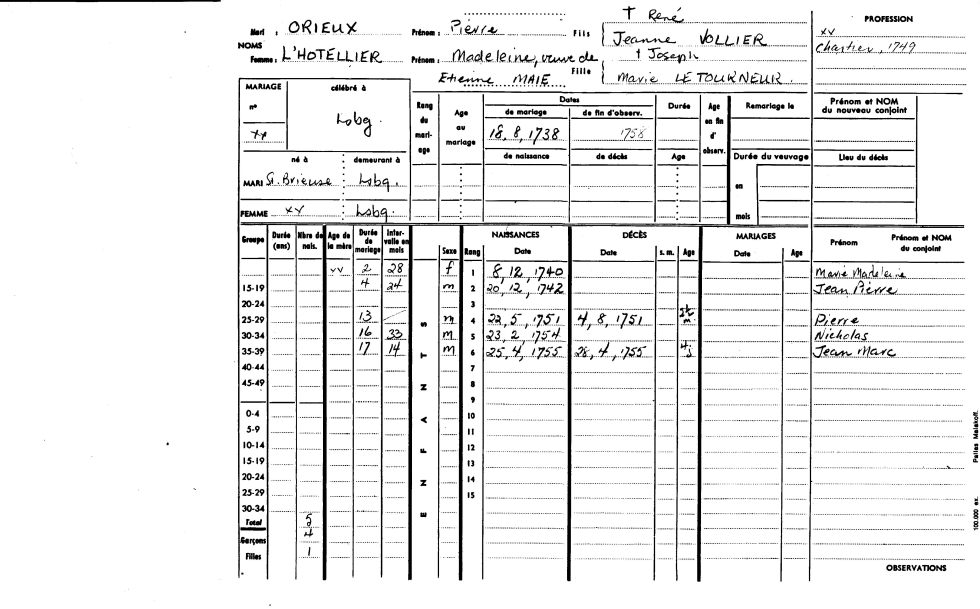 † René
PROFESSION
Mari : ORIEUX Prénom : Pierre Fils Jeanne VOLLIER
xx
Chartier, 1749
NOMS
Femme : L'HOTELLIER Prénom : Madeleine, veuve de Fille † Joseph
Etienne MAIE Marie LE TOURNEUR.
MARIAGE célébré à
n° Lsbg.
xx
Rang du mariage Age au mariage Dates Durée Age en fin d'observ. Remariage le Prénom et NOM du nouveau conjoint
de mariage de fin d'observ.
18, 8, 1738 1758
né à demeurant à de naissance de décès Age Durée du veuvage Lieu du décès
MARI St. Brieuse Lsbg. en
FEMME xy Lsbg. mois
Groupe Durée (ans) Nbre de nais. Age de la mère Durée de mariage Intervalle en mois Sexe Rang NAISSANCES Date DÉCÈS Date s. m. Age MARIAGES Date Age Prénom Prénom et NOM du conjoint
ENFANTS
vv 2 28 f 1 8, 12, 1740 Marie Madeleine
15-19 4 24 m 2 20, 12, 1742 Jean Pierre
20-24 3
25-29 13 m 4 22, 5, 1751 4, 8, 1751 2½ m. Pierre
30-34 16 33 m 5 23, 2, 1754 Nicholas
35-39 17 14 m 6 25, 4, 1755 28, 4, 1755 4 j Jean Marc
40-44 7
45-49 8
9
0-4 10
5-9 11
10-14 12
15-19 13
20-24 14
25-29 15
30-34
Total 5
Garçons 4
Filles 1
OBSERVATIONS
100.000 ex. Pallas Malakoff.